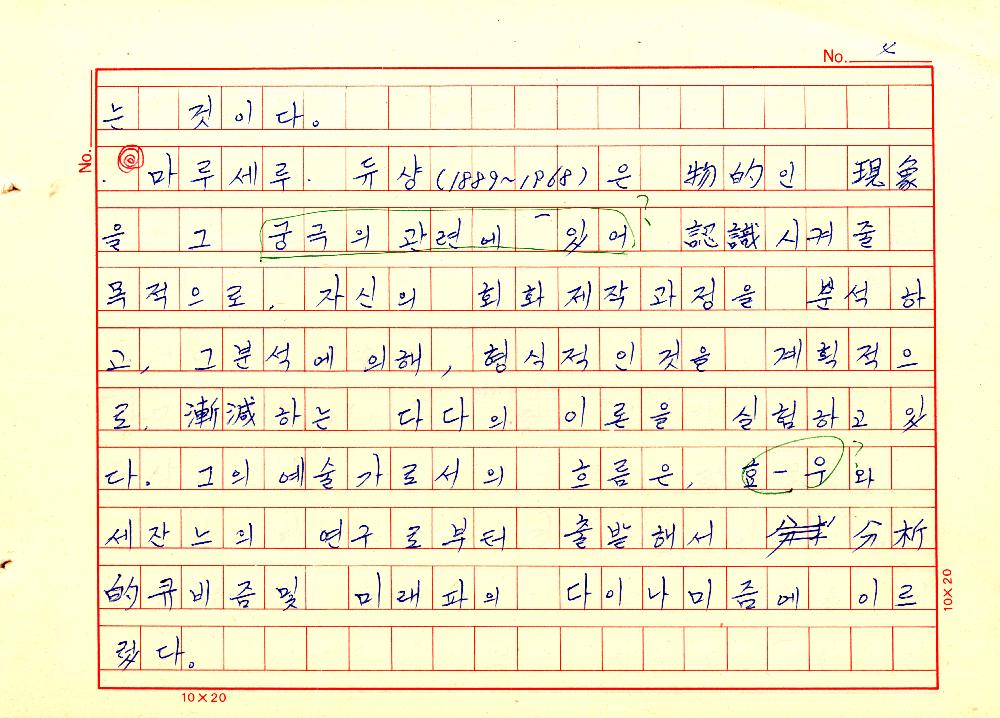 No. 4
No.
는 것이다.
마루세루. 듀샹(1889~1968)은 物的인 現象
을 그 궁극의 관련에 있어? 認識시켜줄
목적으로, 자신의 회화제작과정을 분석하
고, 그분석에 의해, 형식적인것을 계획적으
로, 漸減하는 다다의 이론을 실험하고 있
다. 그의 예술가로서의 흐름은, 효-우?와
세잔느의 연구로부터 출발해서 分析
的큐비즘및 미래파의 다이나미즘에 이르
렀다.
10×20
10×20